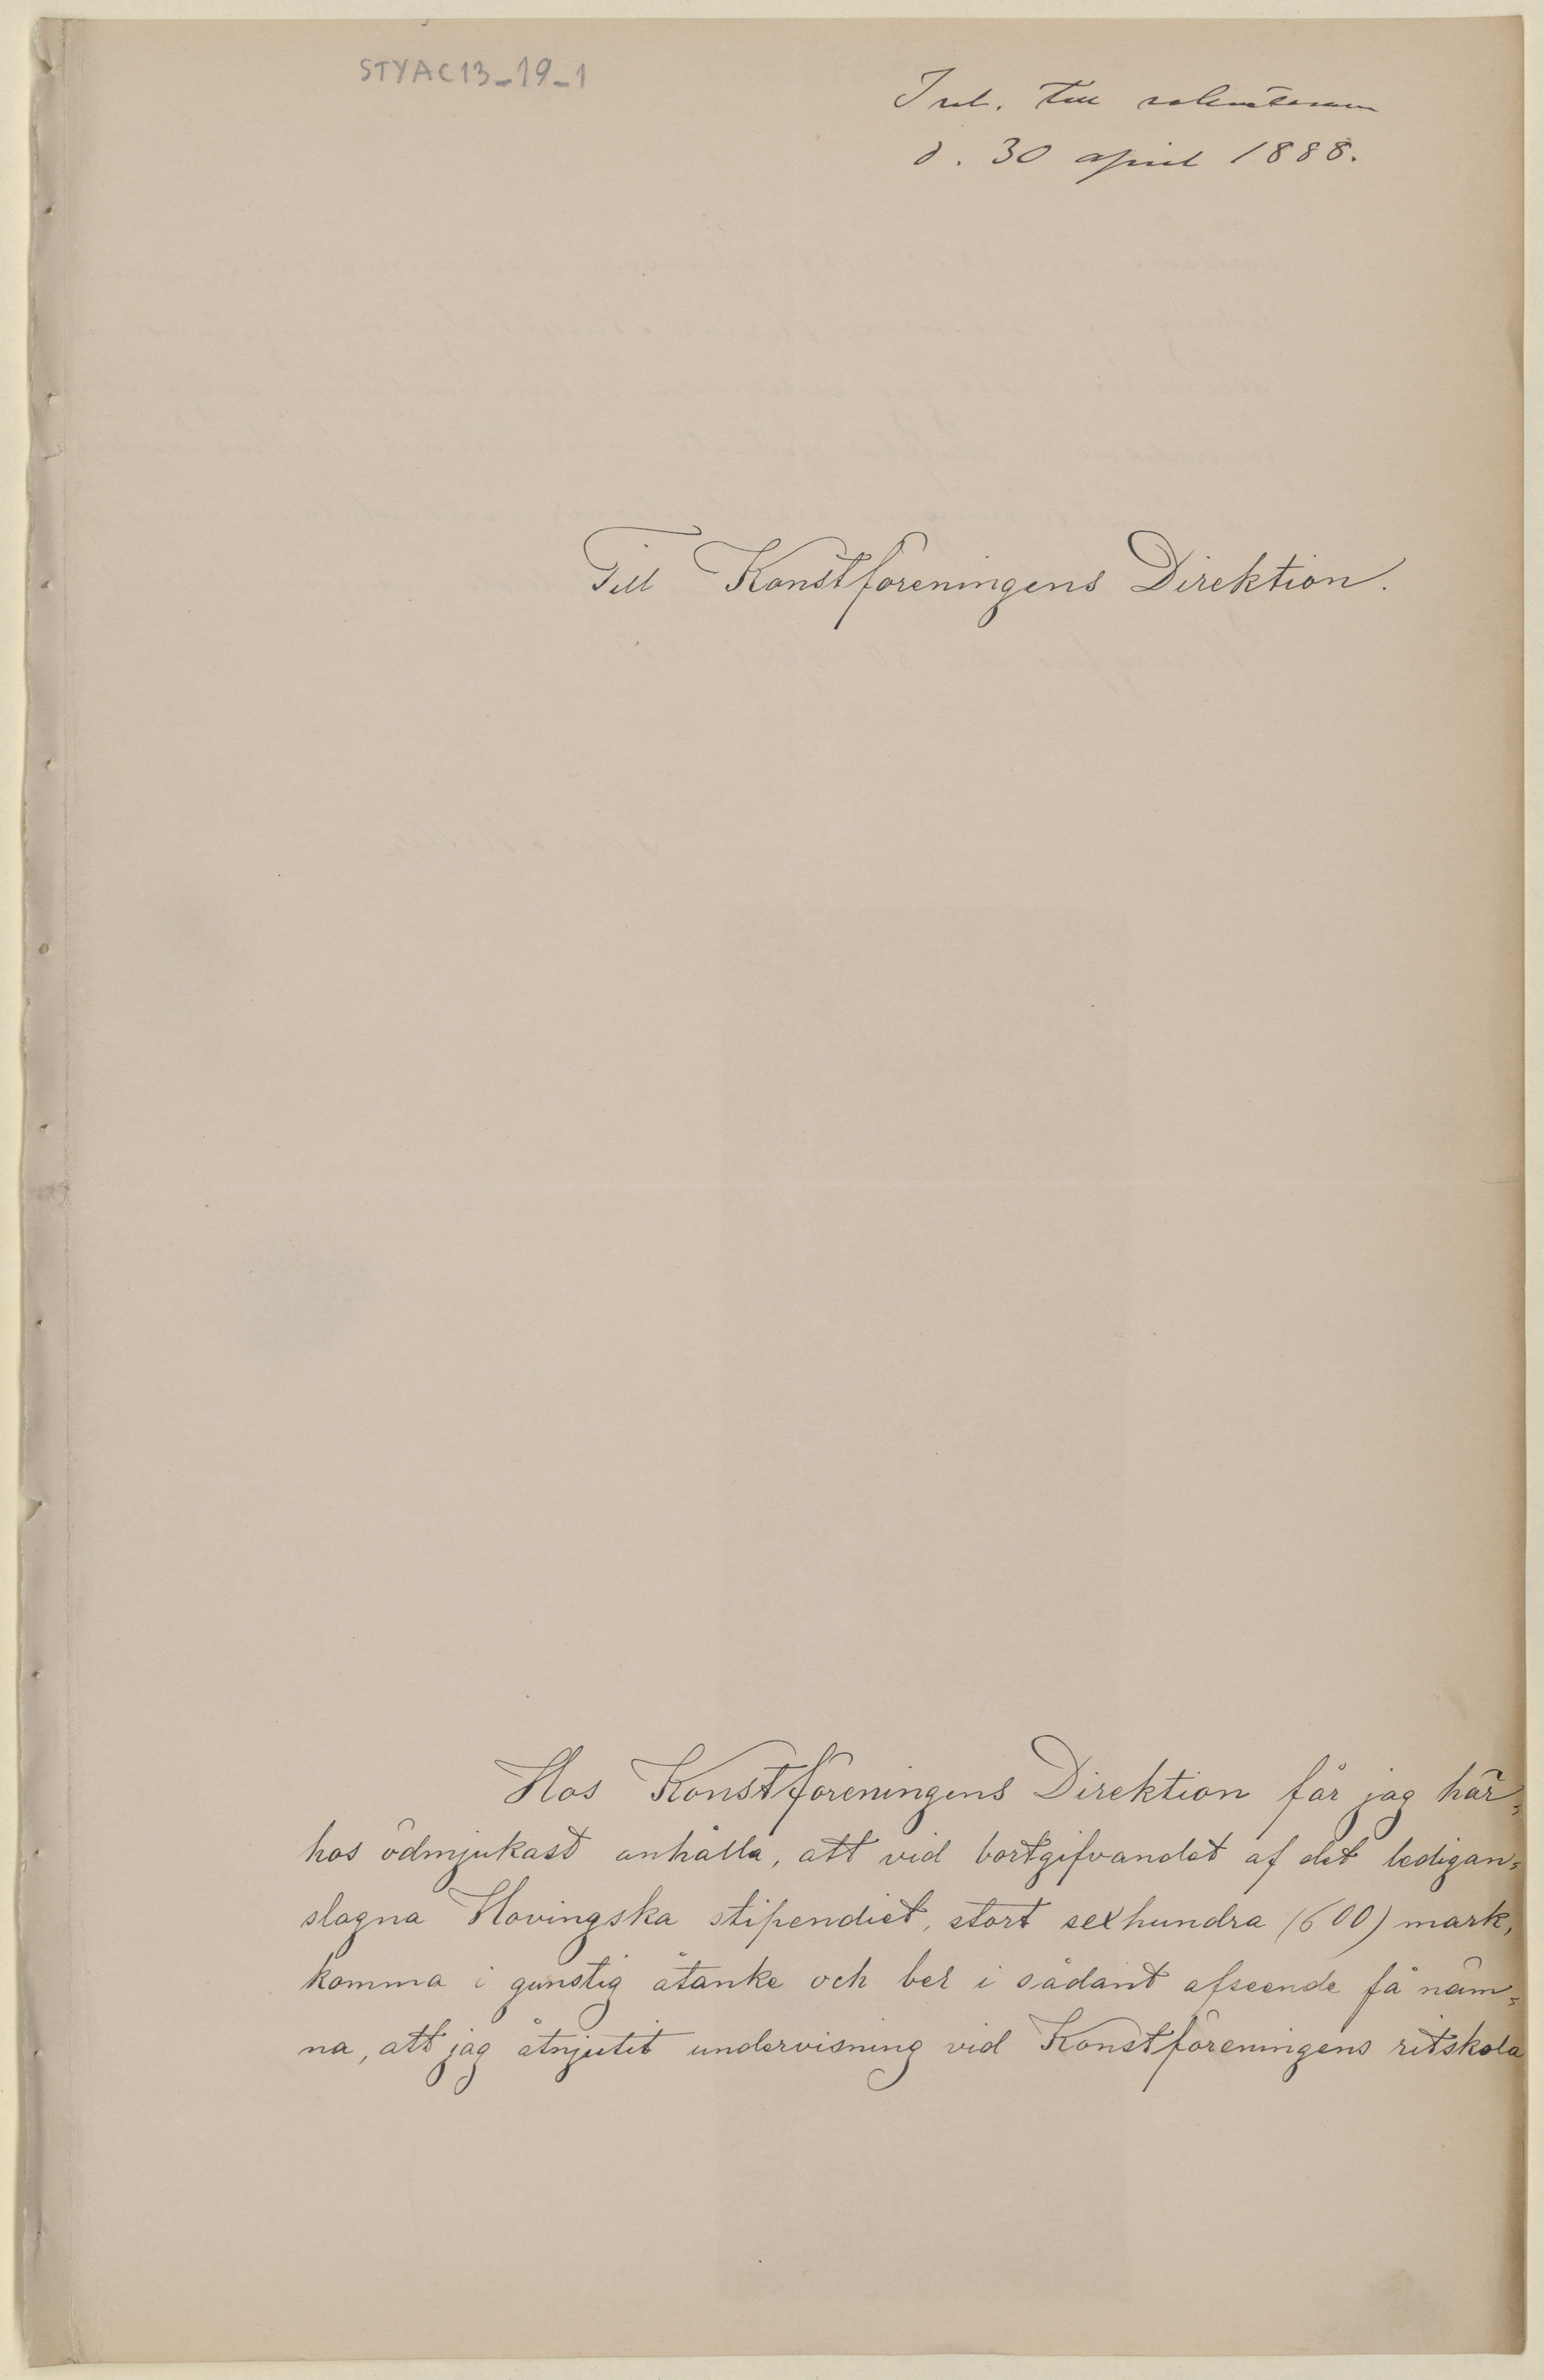 STYAC13-19-1
Inl. till sekreteraren
d. 30 april 1888.
Till Konstföreningens Direktion.
Hos Konstföreningens Direktion får jag här-
hos ödmjukast anhålla, att vid bortgifvandet af det ledigan-
slagna Hovingska stipendiet, stort sexhundra (600) mark,
komma i gunstig åtanke och ber i sådant afseende få näm-
na, att jag åtnjutit undervisning vid Konstföreningens ritskola